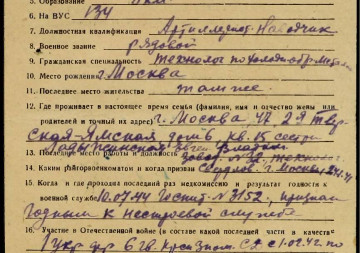 5. Образование
6. На ВУС 134
7. Должностная квалификация Артиллерист-Наводчик
8. Военное звание рядовой
9. Гражданская специальность технолог по холодн. обр. металл
10. Место рождения г. Москва
11. Последнее место жительства там же
12. Где проживает в настоящее время семья (фамилия, имя и отчество жены или
родителей и точный их адрес) г. Москва, 47 2-я Твер
ская-Ямская дом 6 кв. 15 сестра
13. Последнее место работы и должность завод №32, технолог
14. Каким райгорвоенкоматом и когда призван г. Москвы
15. Когда и где проходил последний раз медкомиссию и результат годности к
военной службе 10.07.44 Госпит. №3152, признан
годным к нестроевой службе
16. Участие в Отечественной войне (в составе какой последней части в качестве
1 Укр фр 6 гв. Краснозн. с 1.02.42 по